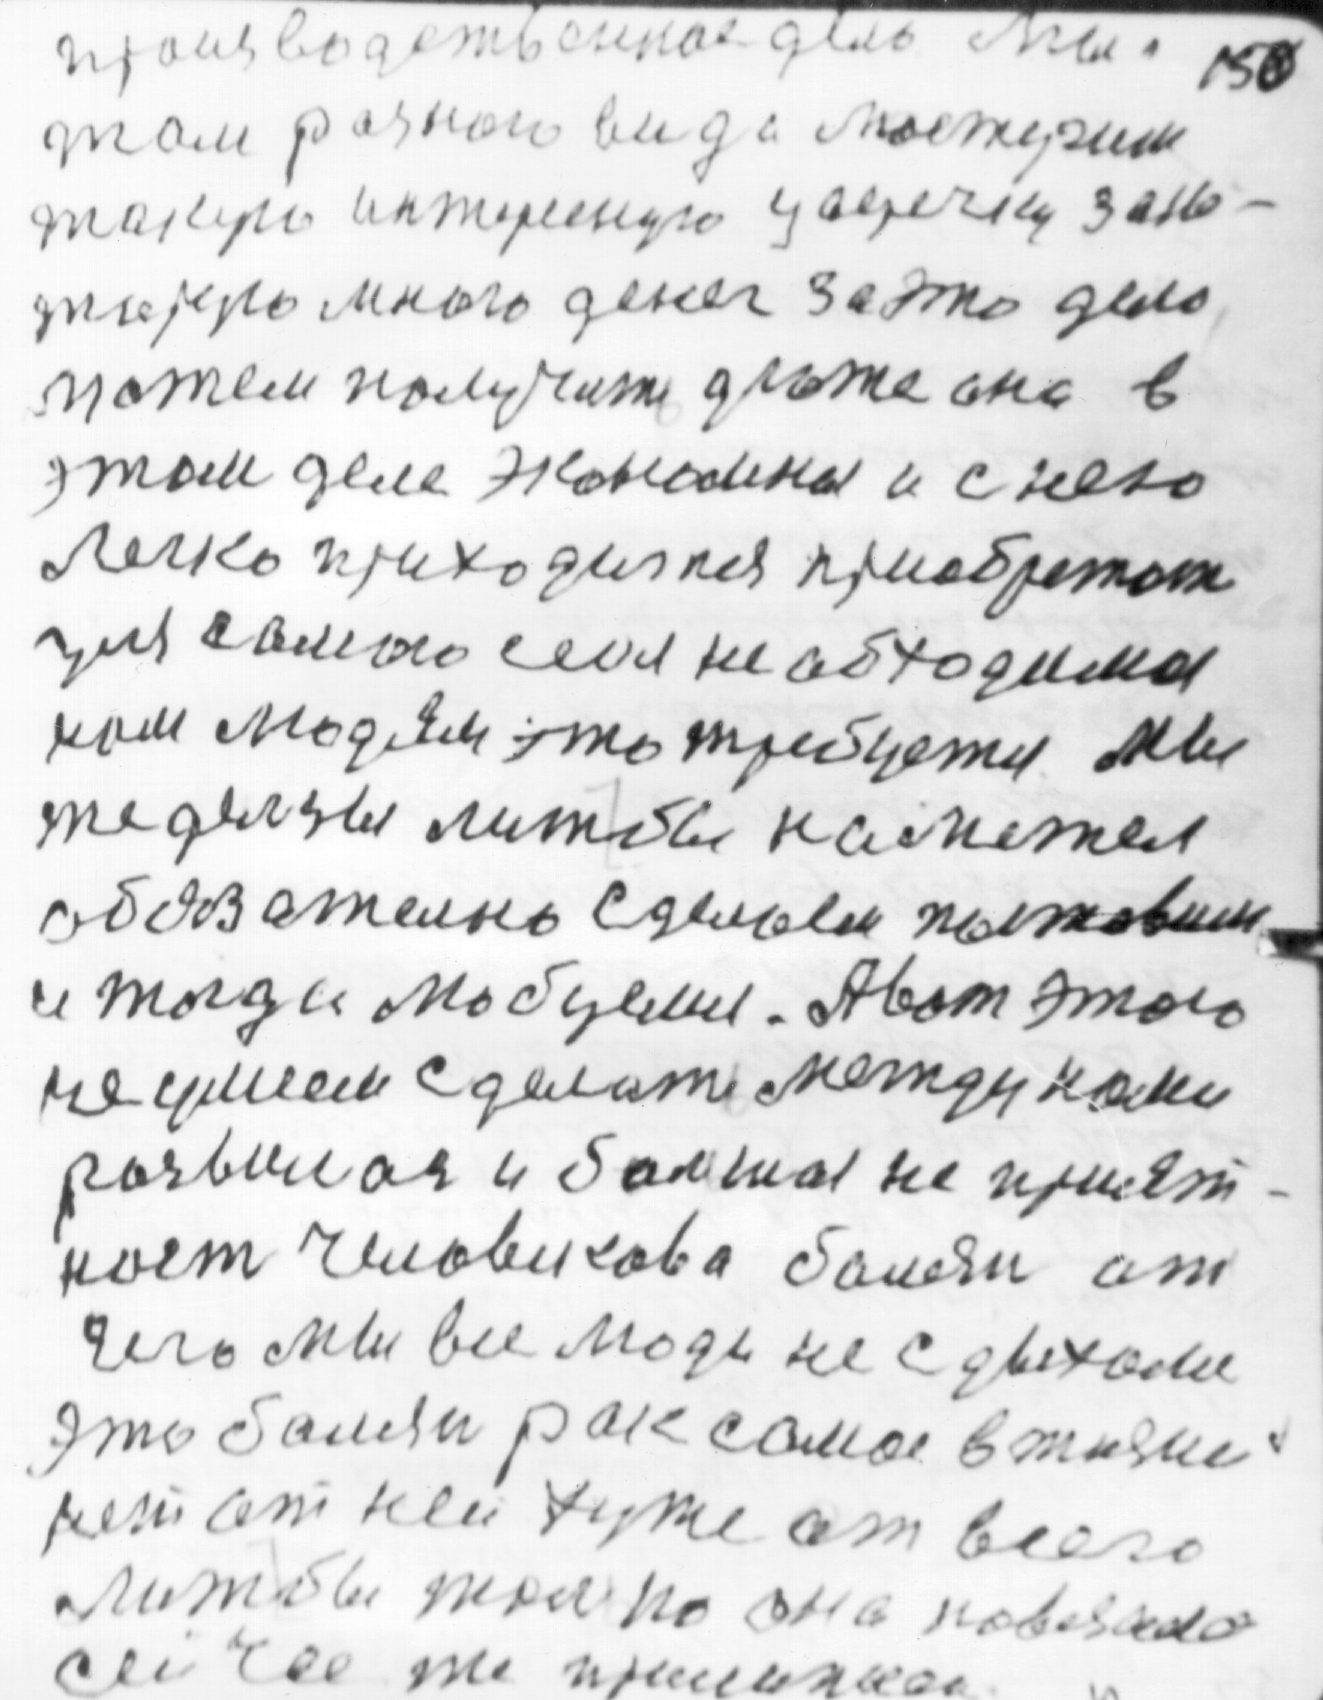 производственное дело Мы
150
там разного вида мастерим
такую интересную заю-
много денег за это дело,
можем получить даже она в
этом деле экономны и с нею
Легко приходился приобретат
для самого себя необходима
нам людям это требуется Мы
же делаы лишбы наметел
обязательно сделаем поставим
и тогда любуемы. А вот этого
не умеем сделать между нами
развилая и балшая не прият-
ност человикова балезн от
чего мы все люди не сдыхали
это балезн рак самое в жизни
нет от ней хуже от всего
лишбы толко она показала
сей час же